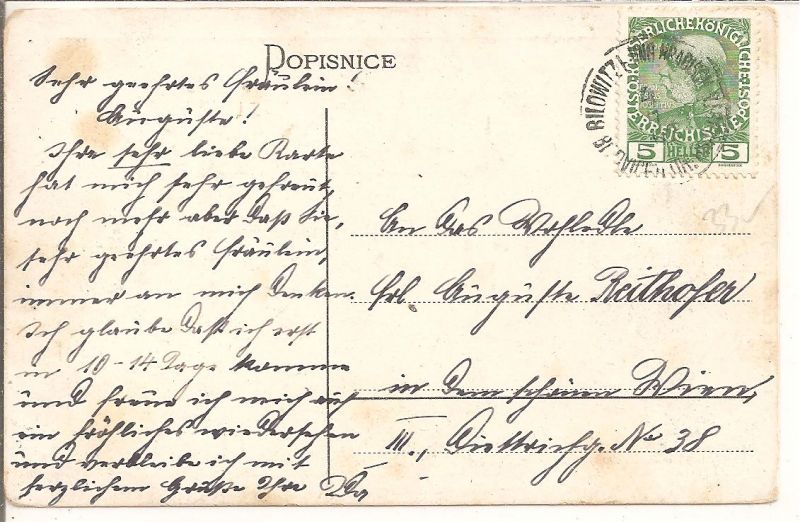 DOPISNICE
Sehr geehrtes Fräulein
Auguste!
Ihre sehr liebe Karte
hat mich sehr gefreut,
noch mehr aber daß Sie,
sehr geehrtes Fräulein,
immer an mich denken.
Ich glaube daß ich erst
in 10-14 Tage komme
und freue ich mich auf
ein fröhliches wiedersehen
und verbleibe ich mit
herzlichem Gruße Ihr
An das Wohledle
Frl. Auguste Reithofer
in dem schönen Wien,
III., Dietrichg. No 38
BILOWITZ
5 HELLER 5